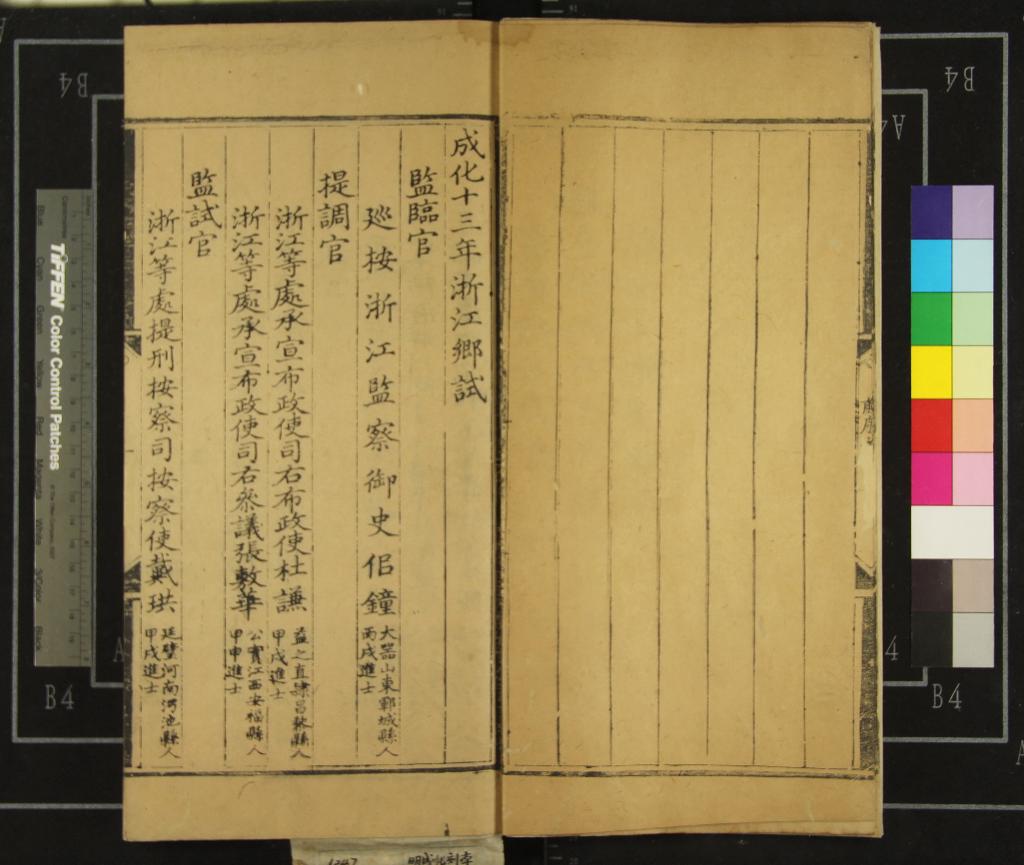 成化十三年浙江鄉試
監臨官
廵按浙江監察御史侶鐘
大器山東鄆城縣人
丙戌進士
提調官
浙江等處承宣布政使司右布政使杜謙
益之直隸昌黎縣人
甲戌進士
浙江等處承宣布政使司右叅議張敷華
公實江西安福縣人
甲申進士
監試官
浙江等處提刑按察司按察使戴珙
廷璧河南河池縣人
甲戌進士
TIFFEN Color Control Patches
B4
B4
B4
B4